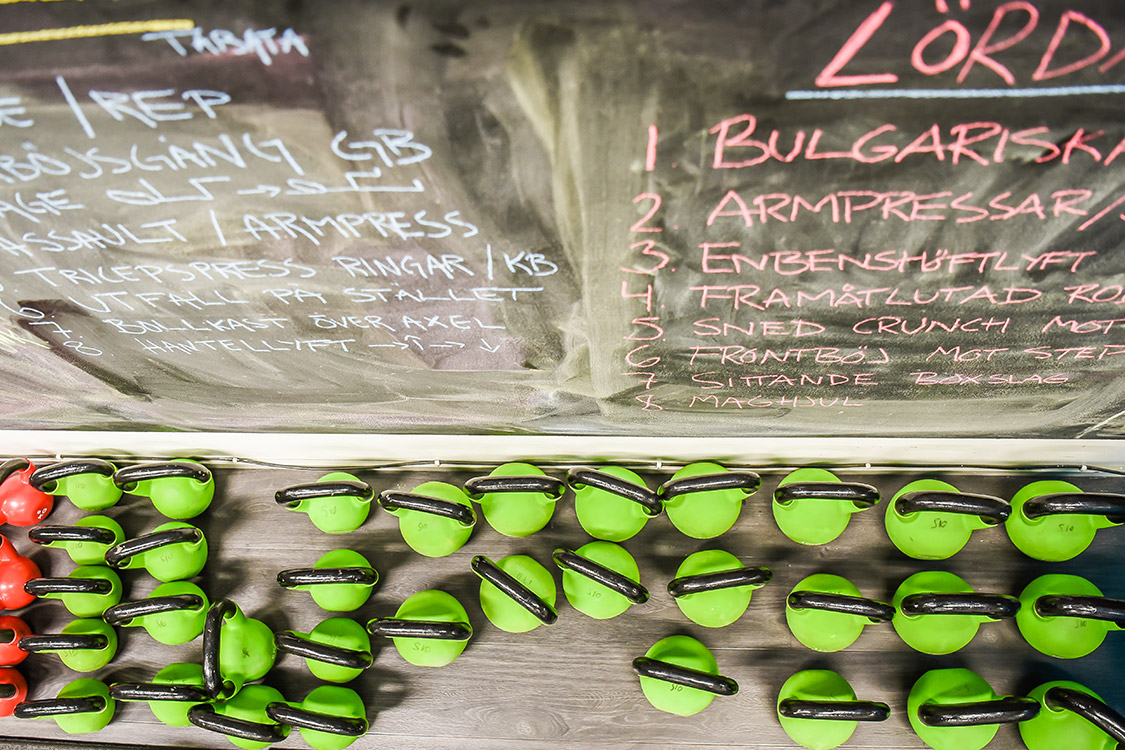 TABATA
E / REP
BÖJSGÅNG GB
AGE
ASSAULT / ARMPRESS
. TRICEPSPRESS RINGAR / KB
6. UTFALL PÅ STÄLLET
7. BOLLKAST ÖVER AXEL
8. HANTELLYFT → ↑ → ↓
LÖRDA
1. BULGARISKA
2. ARMPRESSAR/
3. ENBENSHÖFTLYFT
4. FRAMÅTLUTAD RO
5. SNED CRUNCH MOT
6 FRONTBÖJ MOT STEP
7 SITTANDE BOXSLAG
8 MAGHJUL